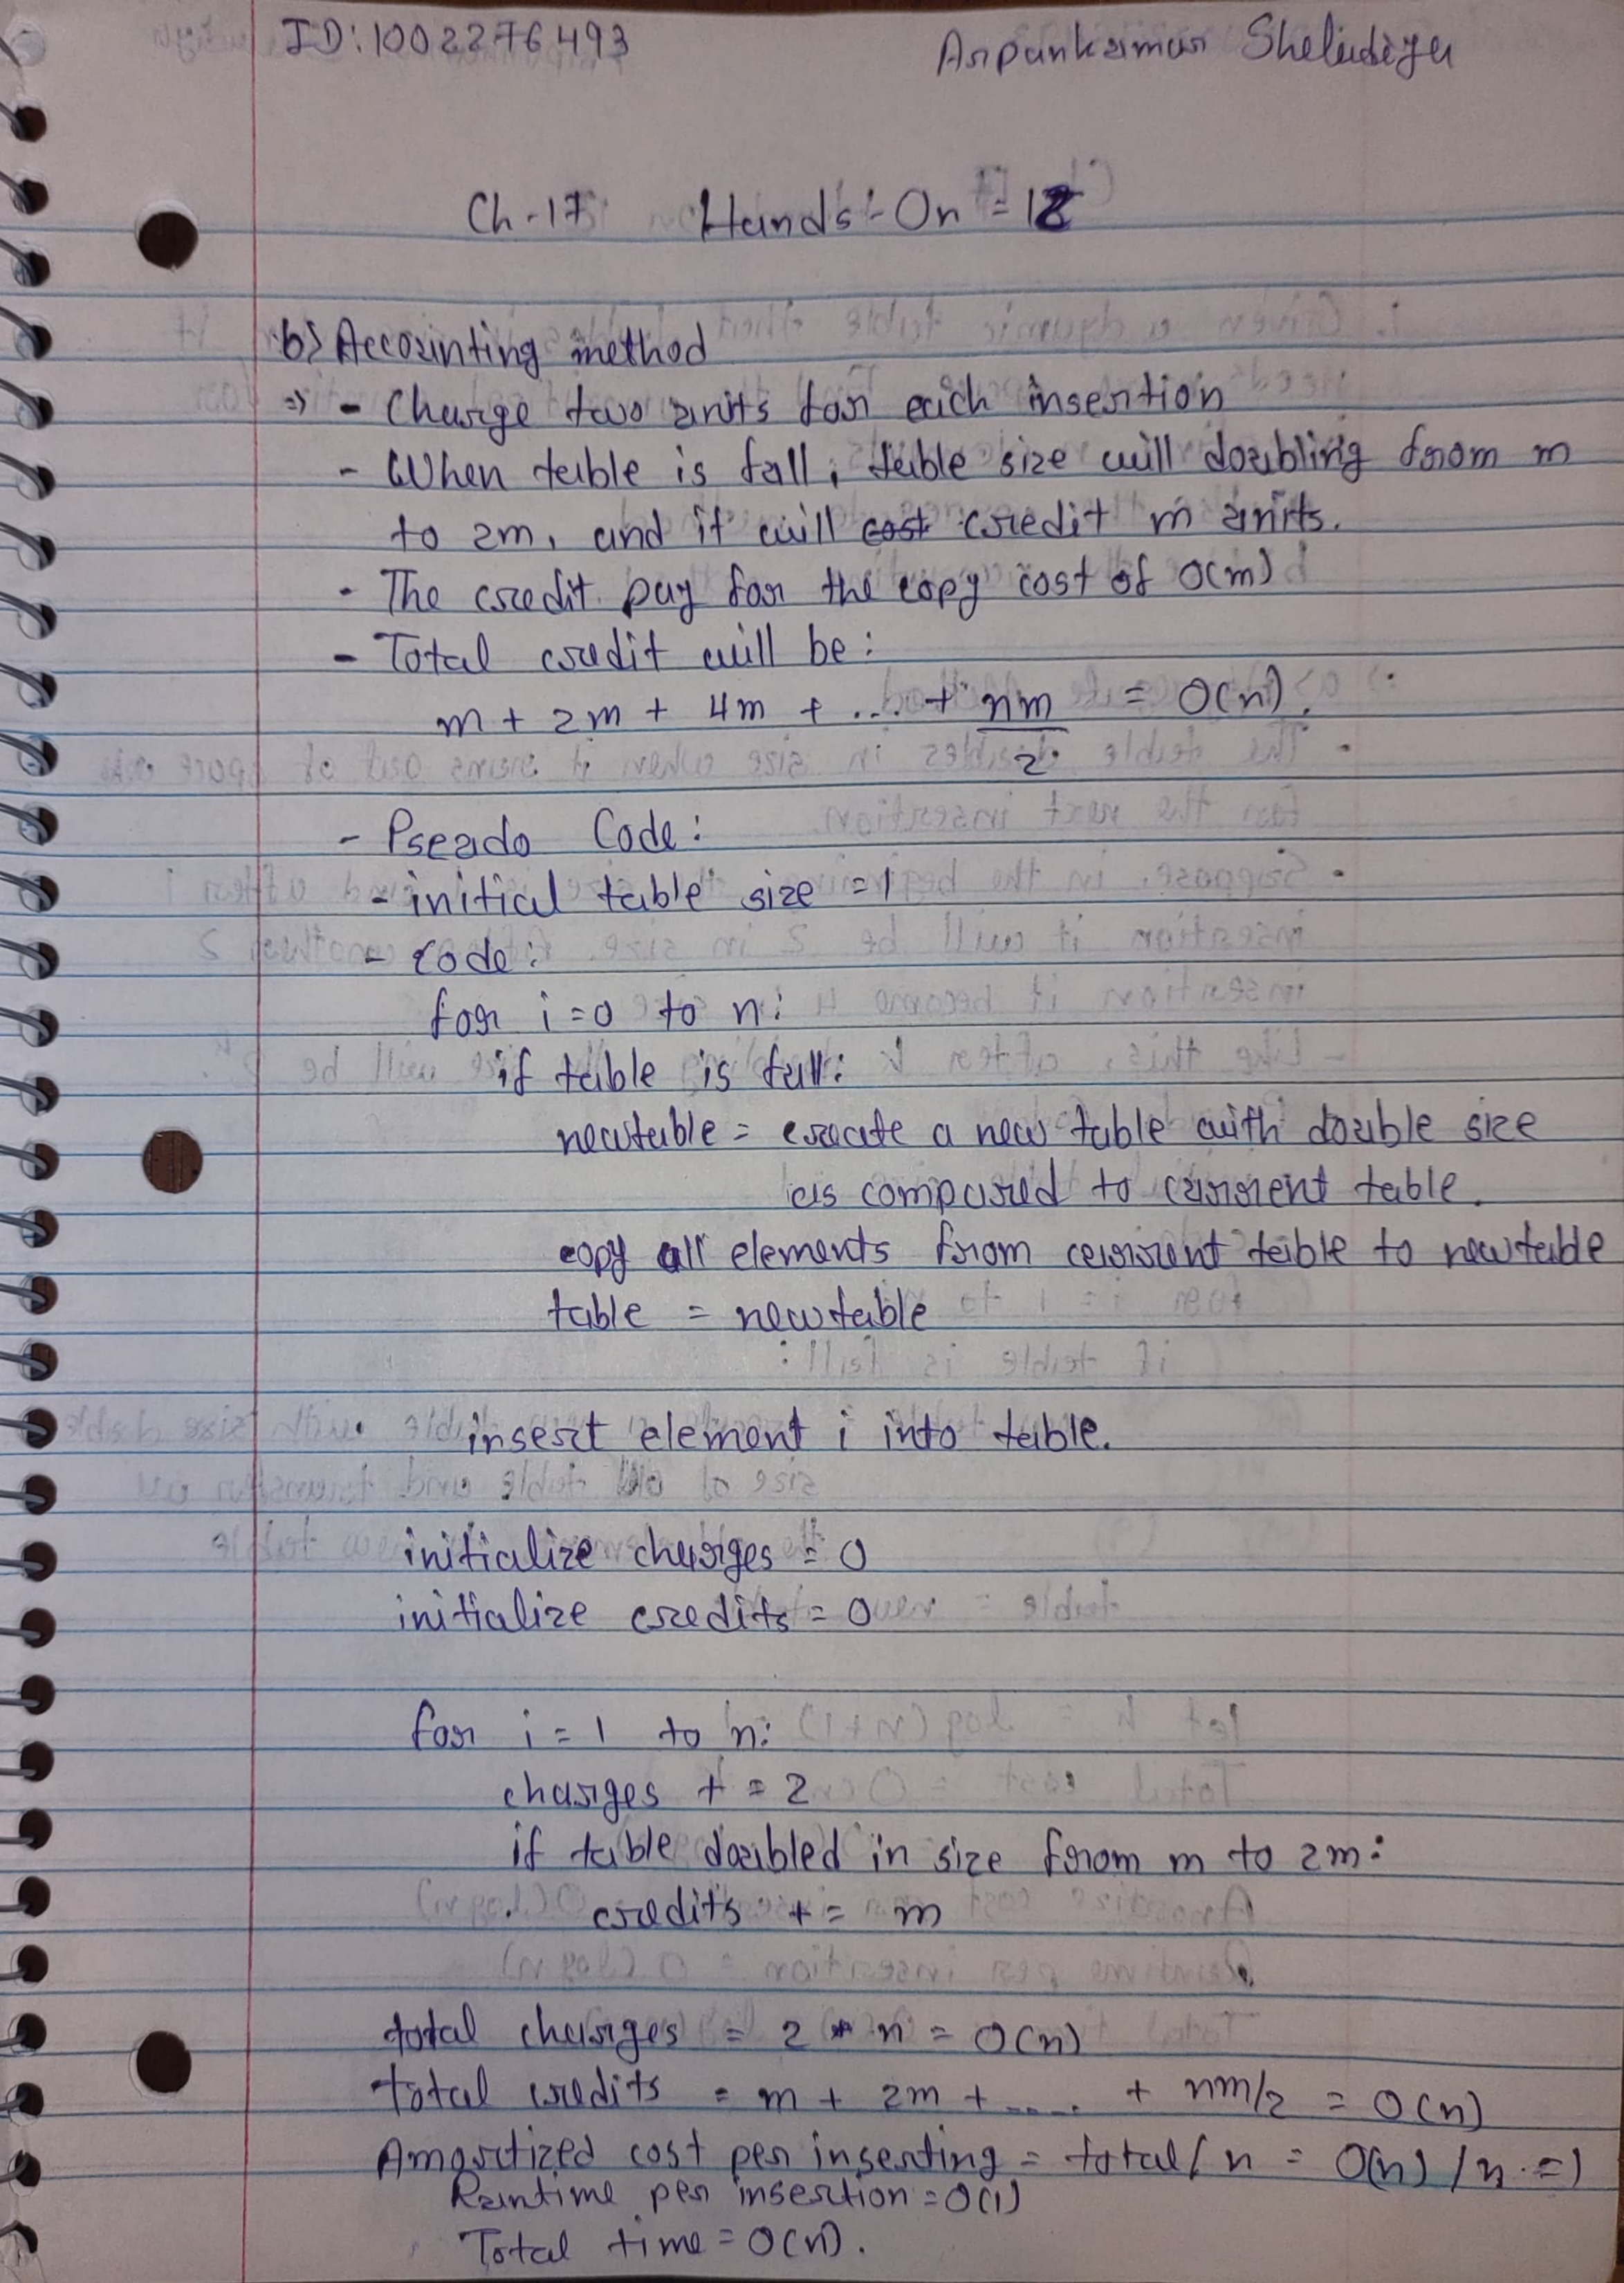 ID:1002276493 Arpankumar Sheladiya
Ch-17 Hands-On-12
b) Accounting method
=> - Charge two units for each insertion
- When table is full, table size will doubling from m
to 2m, and it will cost credit m units.
- The credit pay for the copy cost of O(m)
- Total credit will be:
m + 2m + 4m + ... + nm/2 = O(n).
- Pseudo Code:
- initial table size = 1
- code:
for i=0 to n:
if table is full:
newtable = create a new table with double size
as compared to current table.
copy all elements from current table to newtable
table = newtable
insert element i into table.
initialize charges = 0
initialize credits = 0
for i = 1 to n:
charges += 2
if table doubled in size from m to 2m:
credits += m
total charges = 2 * n = O(n)
total credits = m + 2m + ..... + nm/2 = O(n)
Amortized cost per inserting = total / n = O(n) / n = 1
Runtime per insertion = O(1)
Total time = O(n).